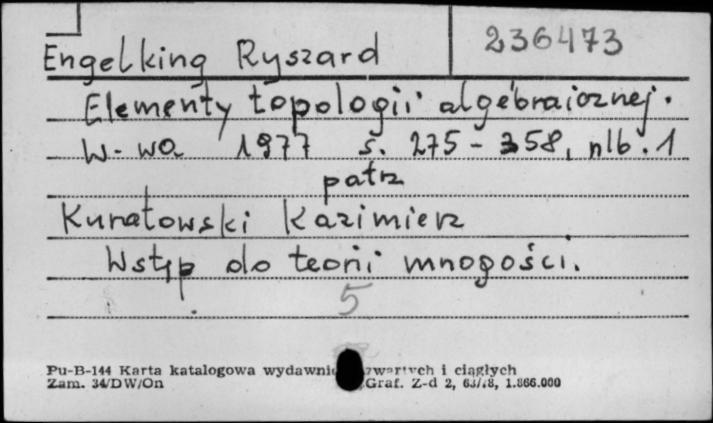 Engelking Ryszard 236473
Elementy topologii algebraicznej.
W-wa 1977 s. 275-358, nlb. 1
patrz
Kuratowski Kazimierz
Wstęp do teorii mnogości.
5
Pu-B-144 Karta katalogowa i ciągłych
Zam. 34/DW/On Graf. Z-d 2, 1.866.000